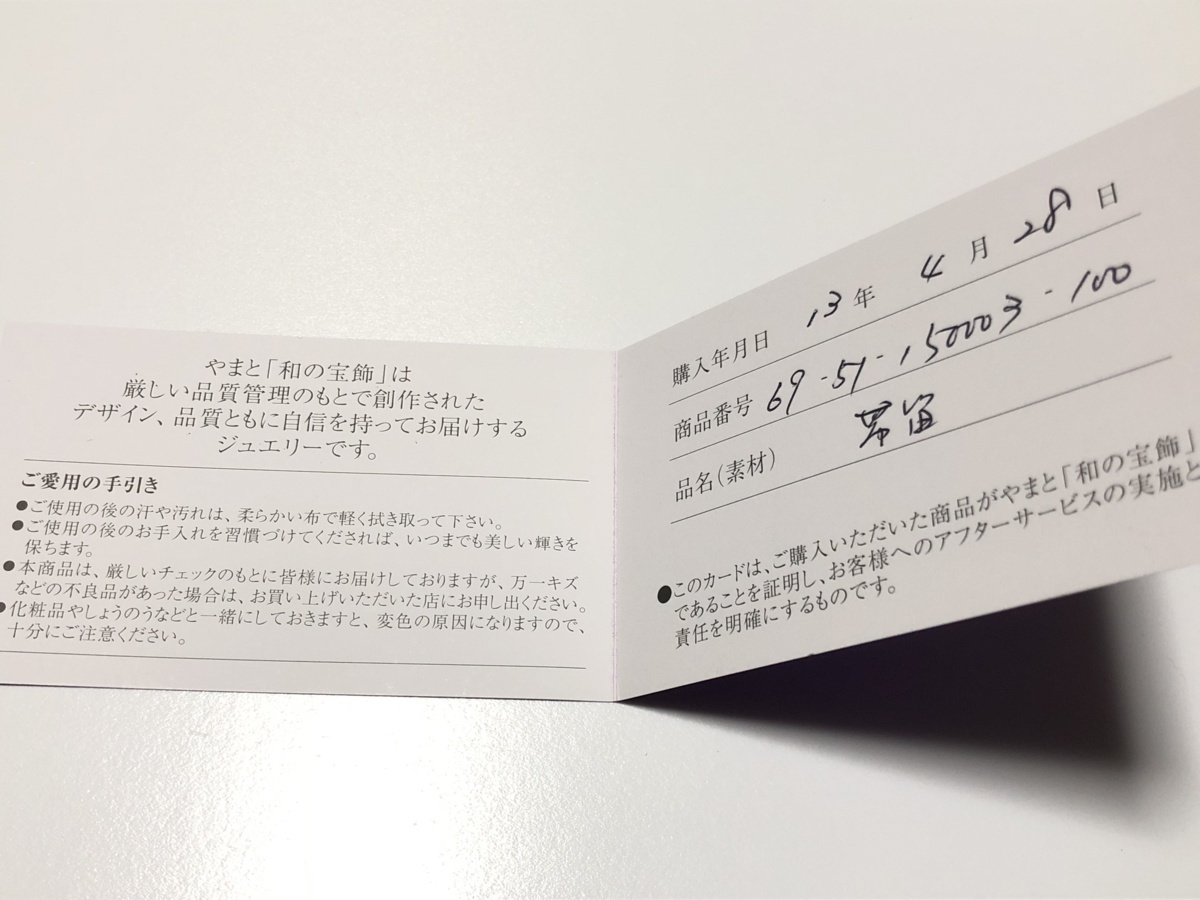 やまと「和の宝飾」は
厳しい品質管理のもとで創作された
デザイン、品質ともに自信を持ってお届けする
ジュエリーです。
ご愛用の手引き
●ご使用の後の汗や汚れは、柔らかい布で軽く拭き取って下さい。
●ご使用の後のお手入れを習慣づけてくだされば、いつまでも美しい輝きを
保ちます。
●本商品は、厳しいチェックのもとに皆様にお届けしておりますが、万一キズ
などの不良品があった場合は、お買い上げいただいた店にお申し出ください。
●化粧品やしょうのうなどと一緒にしておきますと、変色の原因になりますので、
十分にご注意ください。
購入年月日 13年 4月 28日
商品番号 69-51-150003-100
品名(素材) 帯留
●このカードは、ご購入いただいた商品がやまと「和の宝飾」
であることを証明し、お客様へのアフターサービスの実施と
責任を明確にするものです。